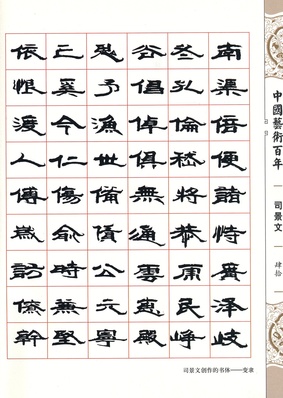 南渠倍便諸恃廣澤岐
冬孔倫嵇將恭庸民崢
谷倡倬俱無通雲惠殿
忍予漁世備債公元寧
亡奚今仁傷俞時兼堅
依恨渡人傅訪僚幹
中國藝術百年
司景文
肆拾
司景文創作的书体——变隶